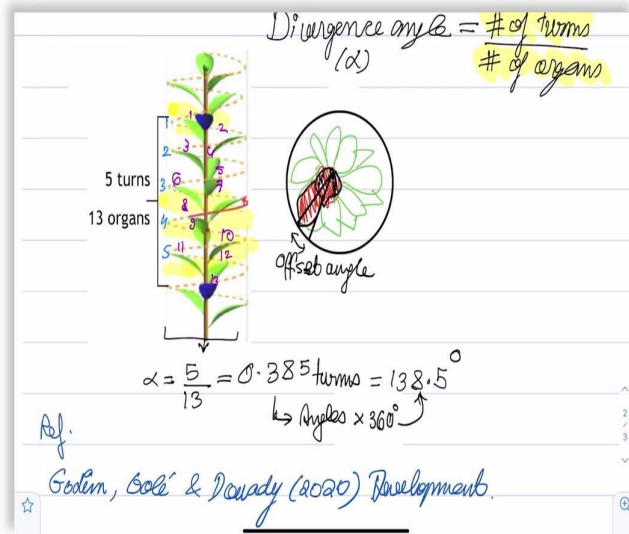 Divergence angle = # of turns
(α) # of organs
1 1 2
2 3 4
5 turns 3 6 5 7
13 organs 4 8 9
5 11 10 12
13
Offset angle
α = 5/13 = 0.385 turns = 138.5°
↳ Angles × 360°
Ref.
Godin, Golé & Douady (2020) Development.
2
/
3